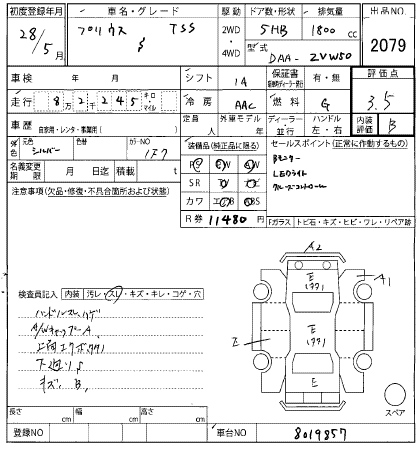 初度登録年月 車名・グレード 駆動 ドア数・形状 排気量 出品NO
28/5月 プリウス TSS 2WD・4WD 5HB 1800cc 2079
S 型式 DAA-ZVW50
車検 年 月 シフト IA 保証書 有・無 評価点
走行 8万2千245 キロ・マイル 冷房 AAC 燃料 G 3.5
車歴 自家用・レンタ・事業用( ) 定員 人 外車モデル 年 ディーラー・並行 ハンドル 左・右 内装評価 B
外色 元色 シルバー 色替 カラーNO 1F7
装備品(純正品に限る) セールスポイント(正常に作動するもの)
名義変更期限 月 日迄 積載 t
PS AW
SR
カワ ABS
Bモニター
LEDライト
クルーズコントロール
R券 11480円
注意事項(欠品・修復・不具合箇所および状態)
Fガラス トビ石・キズ・ヒビ・ワレ・リペア跡
検査員記入 内装 汚レ・スレ・キズ・キレ・コゲ・穴
ハンドルスレハゲ
A/WキャップーA
上面エクボ(タタク)
下廻りS
キズB
A2
E
A1
E
E
E
スペア
長さ cm 幅 cm 高さ cm
登録NO 車台NO 8019857